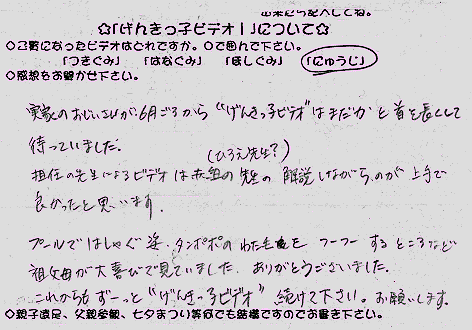 出来たら記入してね。
☆「げんきっ子ビデオ」について☆
◇ご覧になったビデオはどれですか。○で囲んで下さい。
「つきぐみ」 「はなぐみ」 「ほしぐみ」 「にゅうじ」
◇感想をお聞かせ下さい。
実家のおじいさんが6月ごろから“げんきっ子ビデオ”はまだかと首を長くして
待っていました。
(ひろえ先生?)
担任の先生によるビデオは赤組の先生の解説しながら、のが上手で
良かったと思います。
プールではしゃぐ姿、タンポポのわた毛をフーフーするところなど
祖父母が大喜びで見ていました。ありがとうございました。
これからもずーっと“げんきっ子ビデオ”続けて下さい。お願いします。
◇親子遠足、父親参観、七夕まつり等何でも結構ですのでお書き下さい。